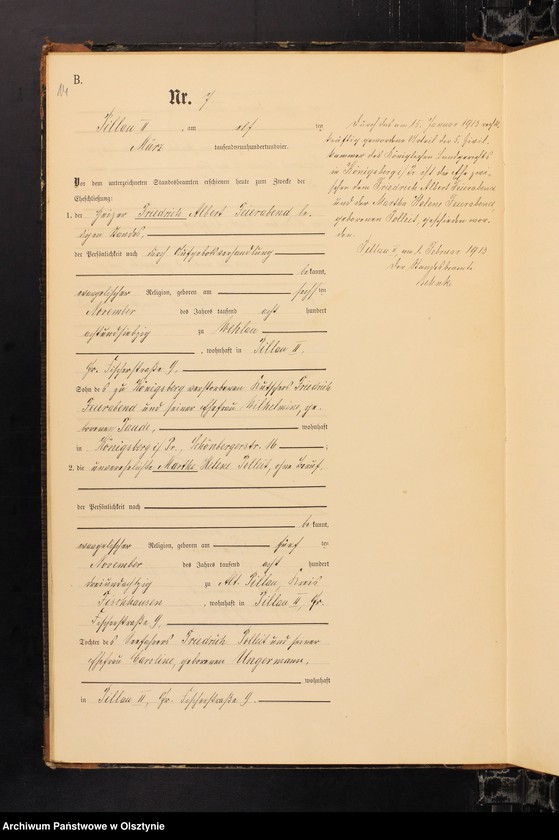 B.
Nr. 7
Pillau II, am elf ten
März tausendneunhundertundvier.
Vor dem unterzeichneten Standesbeamten erschienen heute zum Zwecke der
Eheschließung:
1. der Heizer Friedrich Albert Feierabend le-
digen Standes,
der Persönlichkeit nach durch Aufgebotsverhandlung
be kannt,
evangelischer Religion, geboren am sechs ten
November des Jahres tausend acht hundert
achtundsiebzig zu Wehlau
, wohnhaft in Pillau II,
Gr. Fischerstraße 9.
Sohn des zu Königsberg verstorbenen Kutschers Friedrich
Feierabend und seiner Ehefrau Wilhelmine, ge-
borenen wohnhaft
in Königsberg i/Pr., Schönbergerstr. 16 ;
2. die unverehelichte Martha Helene Polleit, ohne Beruf
der Persönlichkeit nach
be kannt,
evangelischer Religion, geboren am fünf ten
November des Jahres tausend acht hundert
dreiundachtzig zu Alt. Pillau, Kreis
Fischhausen , wohnhaft in Pillau II, Gr.
Fischerstraße 9.
Tochter des Seefahrers Friedrich Polleit und seiner
Ehefrau Caroline, geborenen Ungermann,
wohnhaft
in Pillau II, Gr. Fischerstraße 9.
Durch das am 15. Januar 1913 rechts-
kräftig gewordene Urteil der 5. Zivil-
kammer des Königlichen Landgerichts
in Königsberg i/Pr ist die Ehe zwi-
schen dem Friedrich Albert Feierabend
und der Martha Helene Feierabend,
geborenen Polleit, geschieden wor-
den.
Pillau II, am 1. Februar 1913
Der Standesbeamte
Archiwum Państwowe w Olsztynie